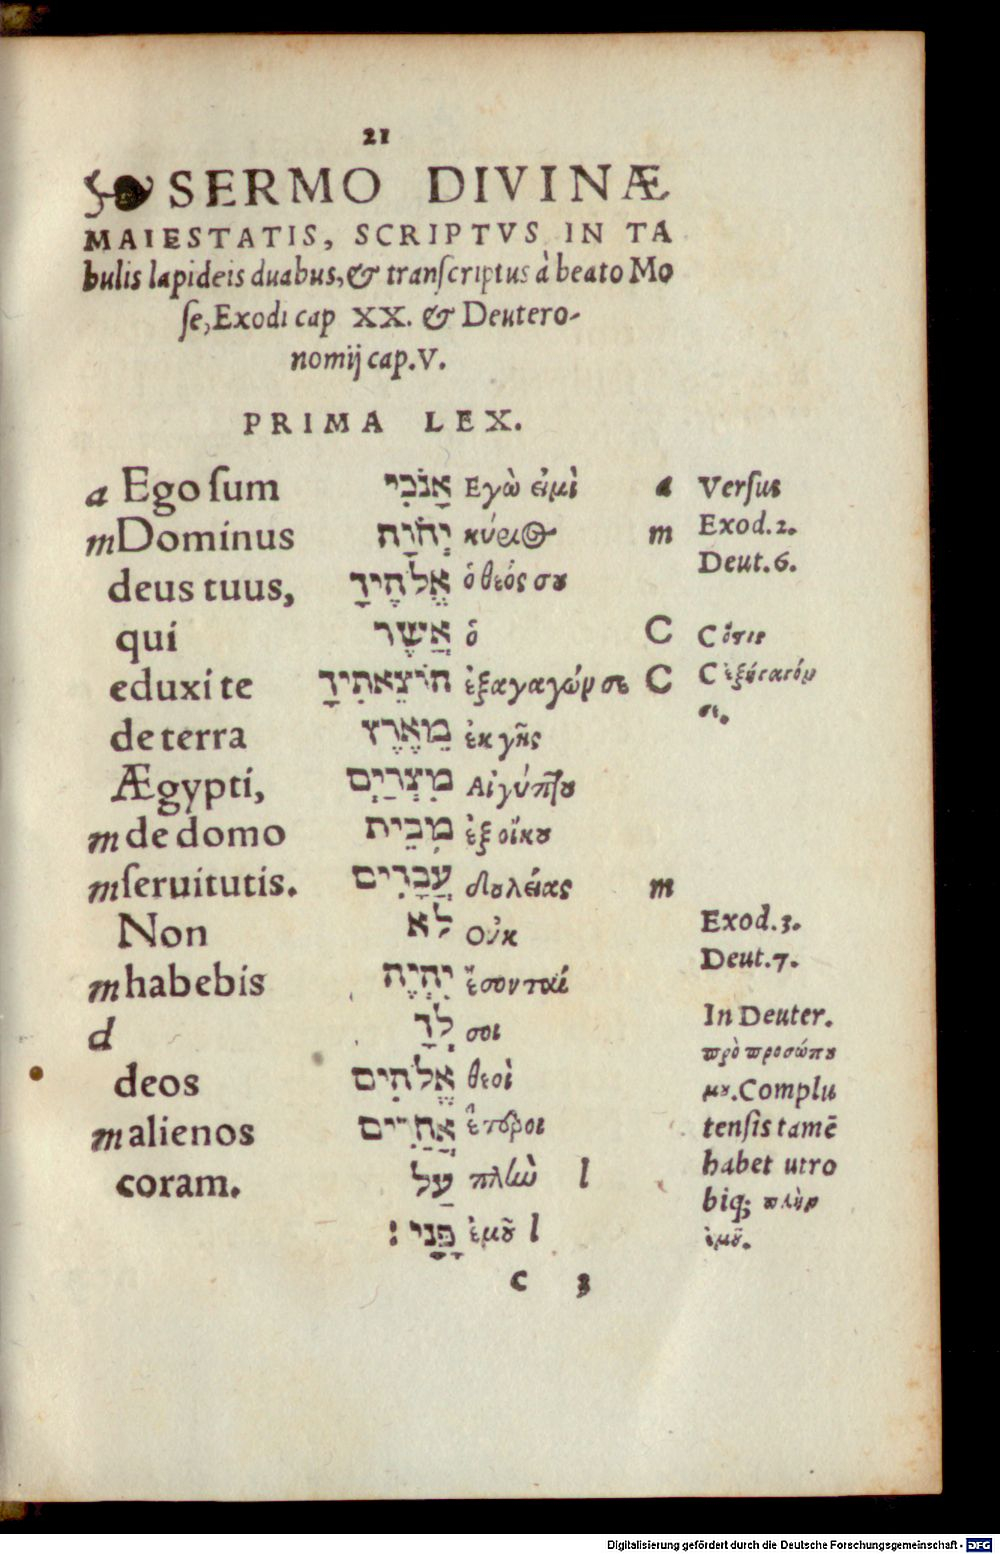 21
SERMO DIVINÆ
MAIESTATIS, SCRIPTVS IN TA
bulis lapideis duabus, & transcriptus à beato Mo
se, Exodi cap XX. & Deutero-
nomij cap. V.
PRIMA LEX.
a Ego sum אָנֹכִי Εγὼ εἰμὶ a Versus
m Dominus יְהֹוָה κύριος m Exod. 2.
deus tuus, אֱלֹהֶיךָ ὁ θεός σου Deut. 6.
qui אֲשֶׁר ὁ C C ὅστις
eduxi te הוֹצֵאתִיךָ ἐξαγαγών σε C C
σε.
de terra מֵאֶרֶץ ἐκ γῆς
Ægypti, מִצְרַיִם Αἰγύπτου
m de domo מִבֵּית ἐξ οἴκου
m seruitutis. עֲבָדִים δουλείας m
Non לֹא Οὐκ Exod. 3.
Deut. 7.
m habebis יִהְיֶה ἔσονταί
d לְךָ σοι In Deuter.
πρὸ προσώπου
deos אֱלֹהִים θεοὶ μου. Complu
m alienos אֲחֵרִים ἕτεροι tensis tamē
habet utro
coram. עַל πλὴν l biq; πλὴν
פָּנָי׃ ἐμοῦ l ἐμοῦ.
c 3
Digitalisierung gefördert durch die Deutsche Forschungsgemeinschaft - DFG